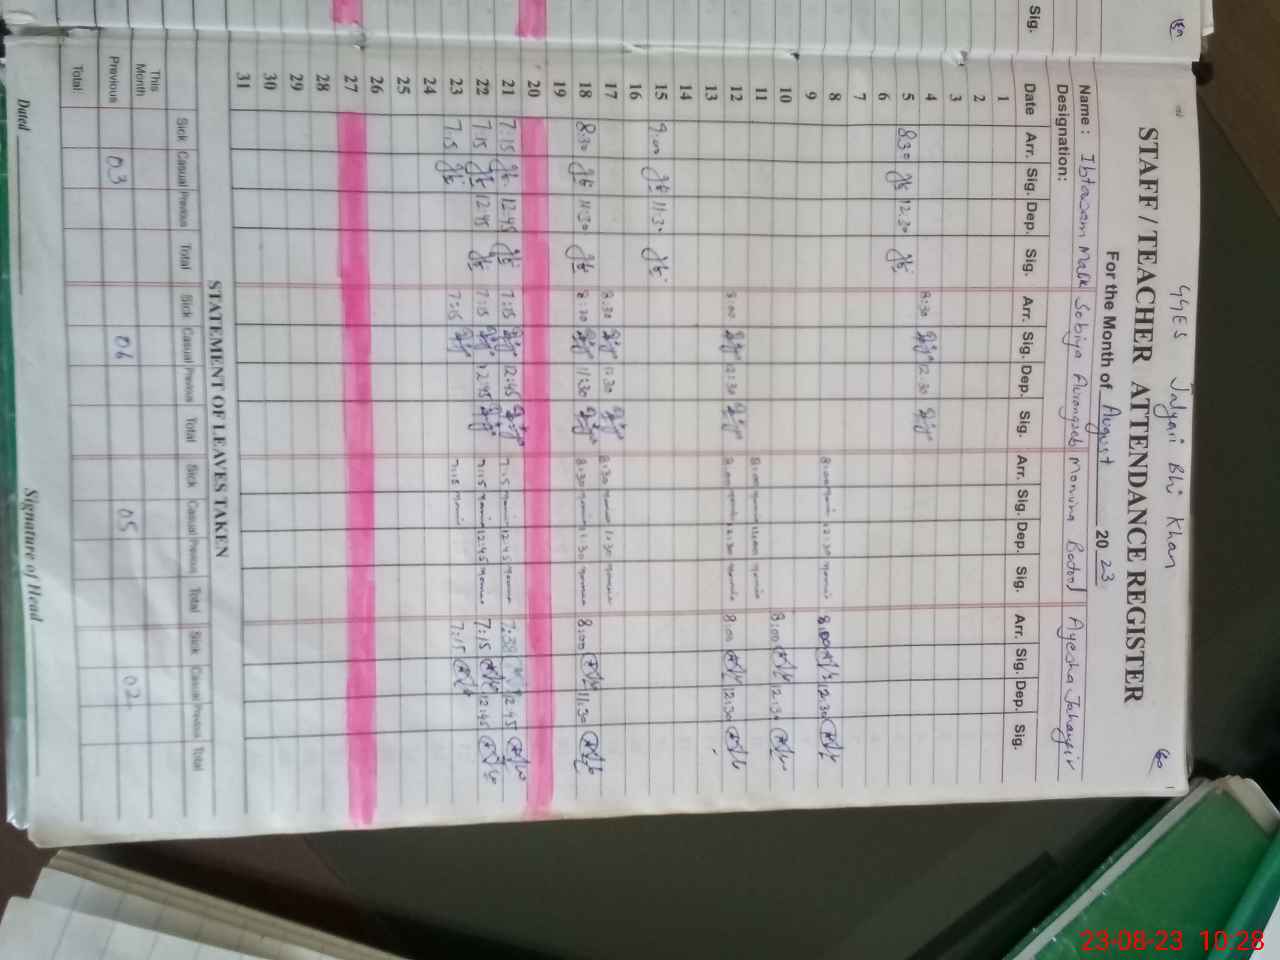 GGES Jalyari Bhi Khan
STAFF / TEACHER ATTENDANCE REGISTER
For the Month of August 20 23
Name : Ibtassam Malik Sobiya Aurangzeb Momina Batool Ayesha Jahangir
Designation:
Date Arr. Sig. Dep. Sig. Arr. Sig. Dep. Sig. Arr. Sig. Dep. Sig. Arr. Sig. Dep. Sig.
1
2
3
4 8:30 12:30
5 8:30 12:30
6
7
8 8:00 12:30 8:00 12:30
9
10 8:00 12:30
11 8:00
12 8:00 12:30 8:00 12:30 8:00 12:30
13
14
15 9:00 11:30
16
17 8:30 11:30 8:30 11:30
18 8:30 11:30 8:30 11:30 8:30 11:30 8:00 11:30
19
20
21 7:15 12:45 7:15 12:45 7:15 12:45 12:45
22 7:15 12:45 7:15 12:45 7:15 12:45 7:15 12:45
23 7:15 7:15 7:15 7:15
24
25
26
27
28
29
30
31
STATEMENT OF LEAVES TAKEN
Sick Casual Previous Total Sick Casual Previous Total Sick Casual Previous Total Sick Casual Previous Total
This Month
Previous 03 06 05 02
Total:
Dated Signature of Head
Sig.
23-08-23 10:28